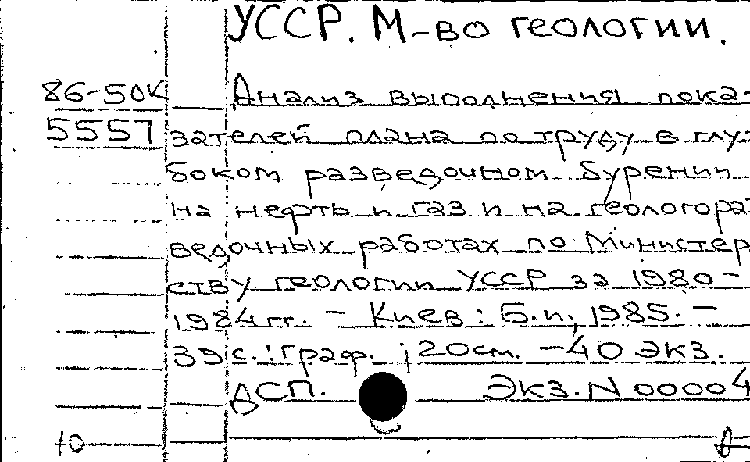 УССР. М-во геологии.
86-50К Анализ выполнения пока-
5557 зателей плана по труду в глу-
боком разведочном бурении
на нефть и газ и на геологораз
ведочных работах по Министер
ству геологии УССР за 1980-
1984 гг. - Киев: Б.и, 1985. -
39 с.: граф.; 20 см. - 40 экз.
ДСП. Экз. N 00004
10